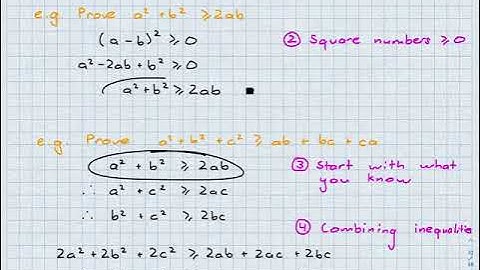 e.g. Prove a² + b² ≥ 2ab
(a-b)² ≥ 0
② Square numbers ≥ 0
a² - 2ab + b² ≥ 0
a² + b² ≥ 2ab ■
e.g. Prove a² + b² + c² ≥ ab + bc + ca
a² + b² ≥ 2ab
③ Start with what
you know
∴ a² + c² ≥ 2ac
∴ b² + c² ≥ 2bc
④ Combining inequalitie
2a² + 2b² + 2c² ≥ 2ab + 2ac + 2bc